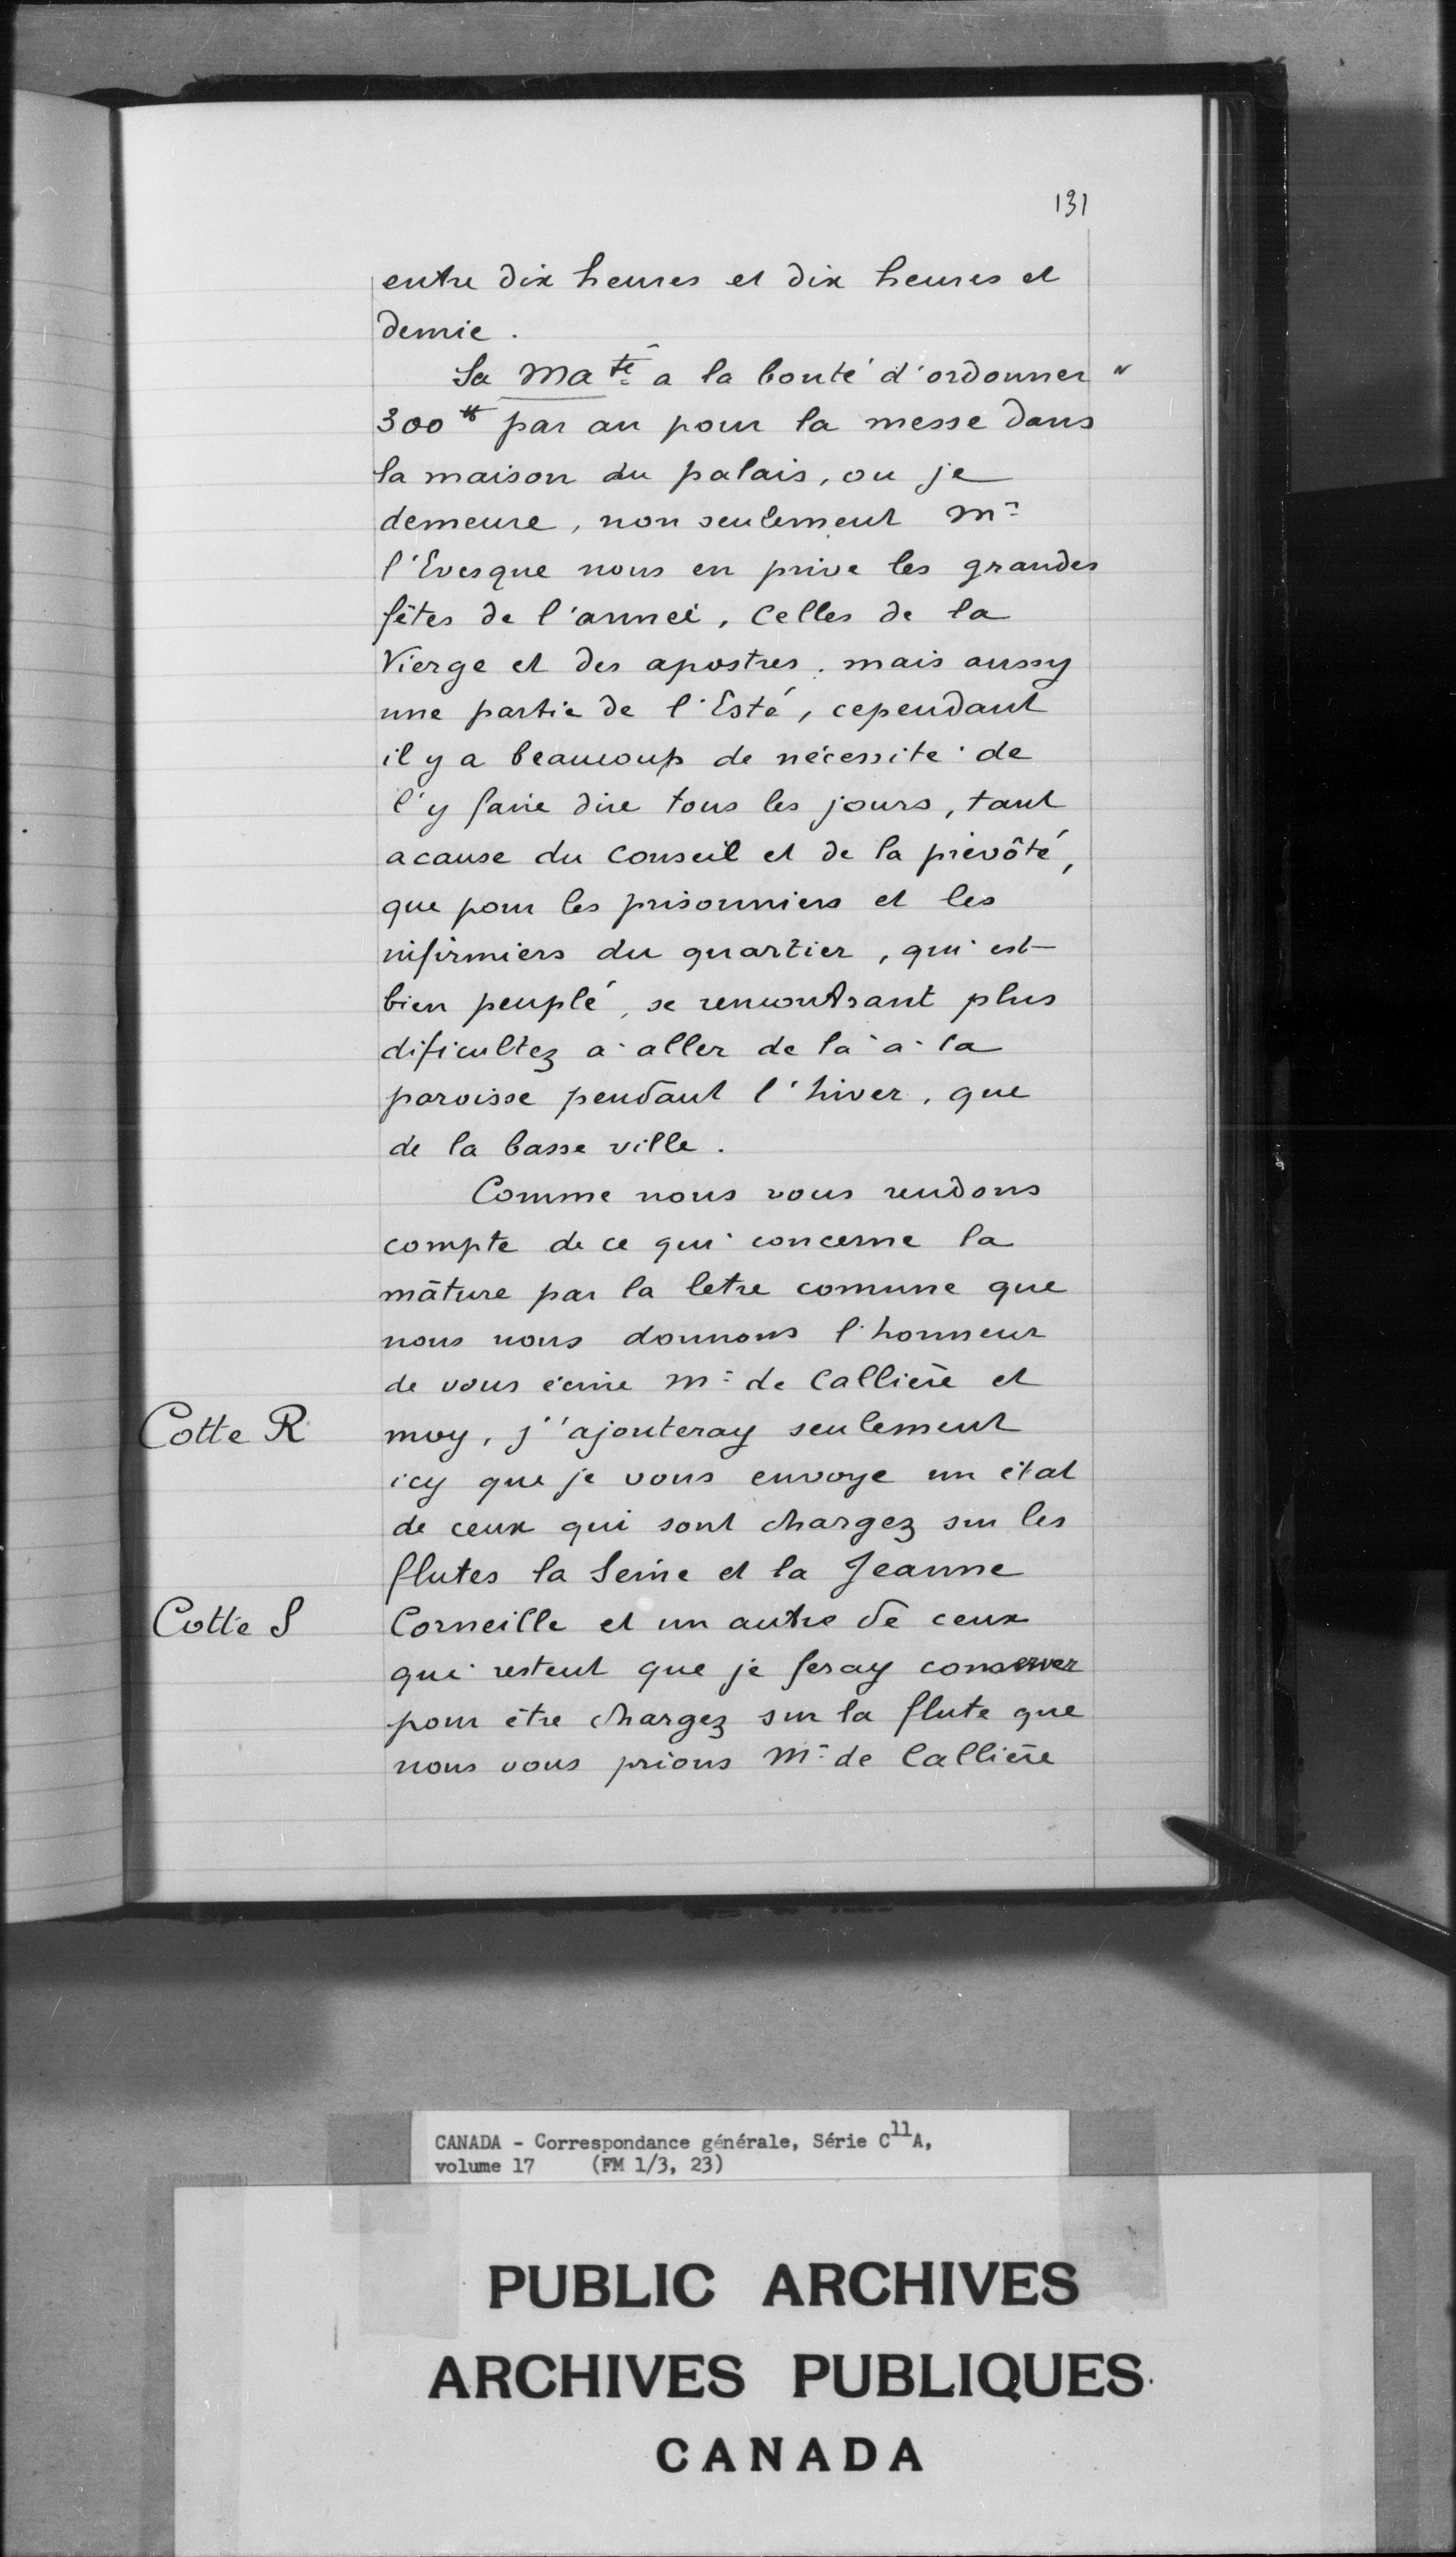 131
entre dix heures et dix heures et
demie.
Sa Ma té a la bonté d'ordonner "
300 ₶ par an pour la messe dans
la maison du palais, ou je
demeure, non seulement Mr
l'Evesque nous en prive les grandes
fêtes de l'année, celles de la
Vierge et des apostres, mais aussy
une partie de l'Esté, cependant
il y a beaucoup de nécessité de
l'y faire dire tous les jours, tant
acause du Conseil et de la prévôté,
que pour les prisonniers et les
infirmiers du quartier, qui est
bien peuplé, se rencontrant plus
dificultez a aller de la a la
paroisse pendant l'hiver, que
de la basse ville.
Comme nous vous rendons
compte de ce qui concerne la
mâture par la letre comune que
nous nous donnons l'honneur
de vous écrire Mr de Callière et
Cotte R moy, j'ajouteray seulement
icy que je vous envoye un état
de ceux qui sont chargez sur les
flutes la Seine et la Jeanne
Cotte S Corneille et un autre de ceux
qui restent que je feray conserver
pour être chargez sur la flute que
nous vous prions Mr de Callière
CANADA - Correspondance générale, Série C11A,
volume 17 (FM 1/3, 23)
PUBLIC ARCHIVES
ARCHIVES PUBLIQUES
CANADA